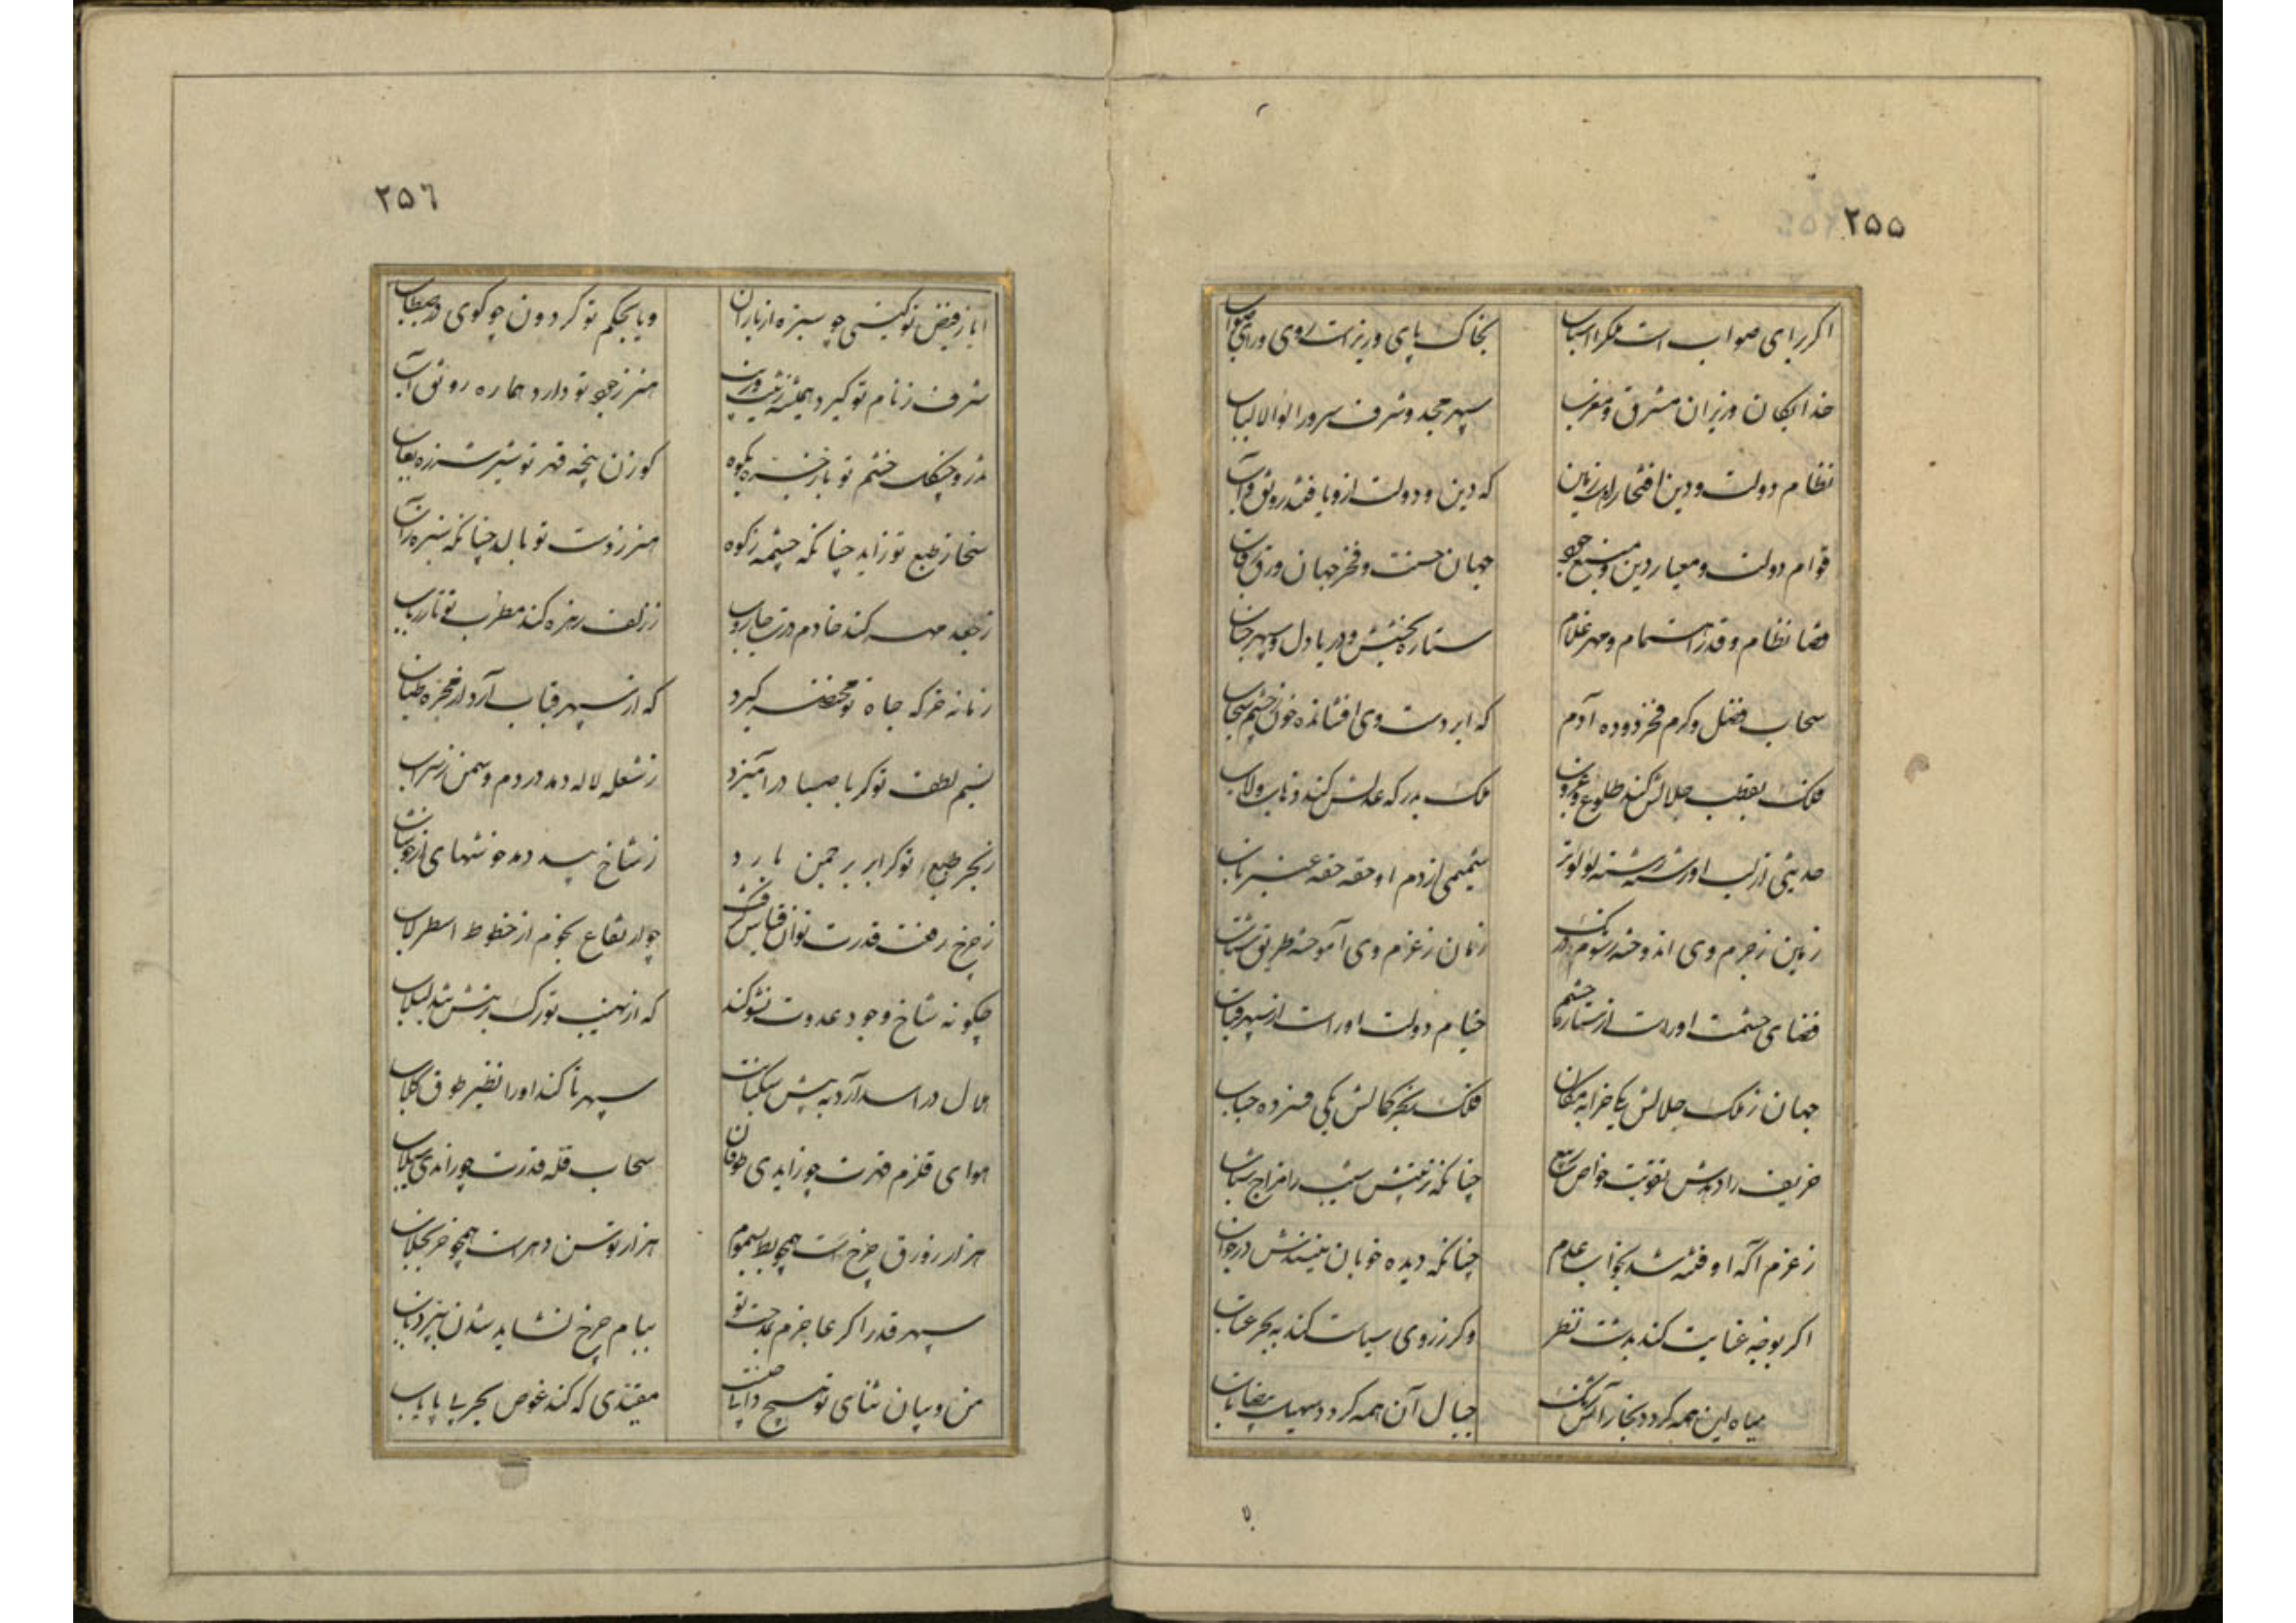 ۲۵۵
اگر برای صواب است مر ترا اسباب بخاک پای وزیر است روی و رای صواب
خدایگان وزیران مشرق و مغرب سپهر مجد و شرف سرور اولوالالباب
نظام دولت و دین افتخار زمین که دین و دولت ازو یافتند رونق و آب
قوام دولت و معیار دین و منبع جود جهان حشمت و فخر جهان
قضا نظام و قدر اهتمام و مهر غلام ستاره بخشش و دریا دل و سپهر جناب
سحاب فضل و کرم فخر دوده آدم که ابر دست وی افشانده خون ز چشم سحاب
فلک بقطب جلالش کند طلوع و غروب ملک بدرگه عدلش کند ذهاب و ایاب
حدیثی از لب او رشته رشته لؤلؤ تر شمیمی از دم او حقه حقه عنبر ناب
زمین ز حزم وی اندوخته رسوم درنگ زمان ز عزم وی آموخته طریق شتاب
فضای حشمت او راست از ستاره حشم خیام دولت او راست از سپهر قباب
جهان ز ملک جلالش یکی خرابه مکان فلک ببحر کمالش یکی فسرده حباب
خریف را دهدش تقویت خواص ربیع چنانکه تربیتش شیب را مزاج شباب
ز عزم آگه او فتنه شد بخواب عدم چنانکه دیده خوبان نبیندش در خواب
اگر بوجه عنایت کند بدشت نظر وگر ز روی سیاست کند به بحر عتاب
میاه این همه گردد بخار آتش رنگ جبال آن همه گردد
۲۵۶
ایا ز فیض تو گیتی چو سبزه از باران ویا بحکم تو گردون چو گوی در طبطاب
شرف ز نام تو گیرد همیشه زینت و زین هنر ز جود تو دارد هماره رونق و آب
تذرو چنگل خشم تو باز خیره بکوه گوزن پنجه قهر تو شیر شرزه بغاب
سخا ز طبع تو زاید چنانکه چشمه ز کوه هنر ز دست تو بالد چنانکه سبزه ز آب
ز جعد کند خادم درت جاروب ز زلف زهره کند مطرب تو تار رباب
زمانه خرگه جاه تو کیرد که از سپهر قباب آرد از مجره طناب
نسیم لطف تو گر با صبا درآمیزد ز شعله لاله دمد در دم و سمن ز سراب
ز بحر طبع تو گر ابر بر چمن بارد ز شاخ بید دمد خوشهای
ز چرخ رفعت قدرت توان قیاس گرفت چو ارتفاع نجوم از خطوط اسطرلاب
چگونه شاخ وجود عدوت نشو کند که از نهیب تو رگ بر تنش شد لبلاب
هلال در اسد آرد به پیش سپهر تا کند او را نظیر طوق کلاب
هوای قلزم قهرت چو زاید طوفان سحاب قله قدرت چو راندی سیلاب
هزار زورق چرخ است همچو بط هزار توسن دهر است همچو خر بخلاب
سپهر قدرا گر عاجزم بمدحت تو ببام چرخ نشاید شدن
من و بیان ثنای تو هیچ دانی چیست مقیدی که کند غوص بحر بی پایاب